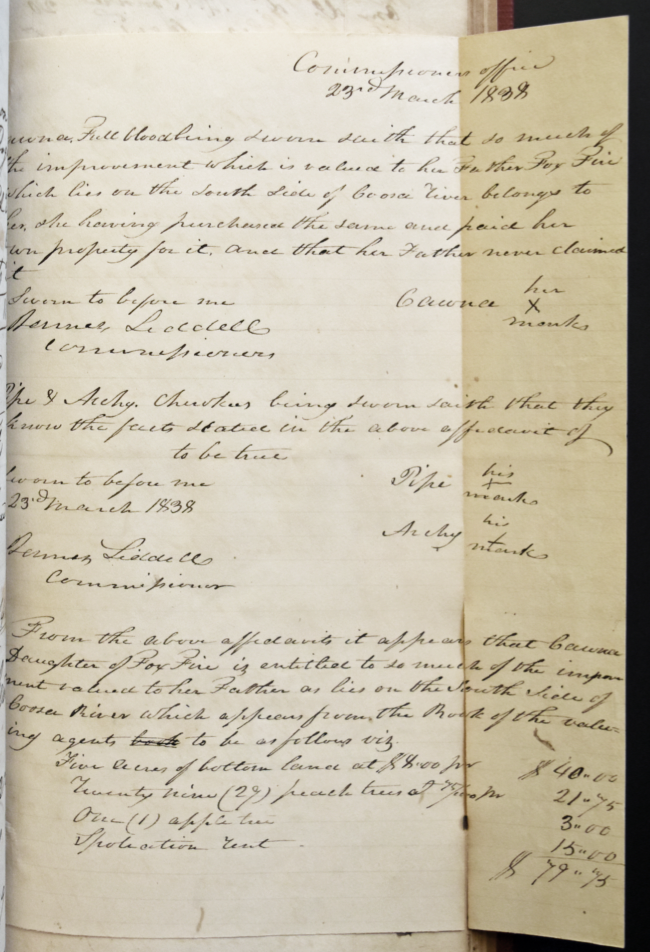 Commissioners office
23rd March 1838
Full blood being sworn saith that so much of
the improvement which is valued to her Father Fox Fire
which lies on the South side of Coosa River belongs to
her, she having purchased the same and paid her
own property for it, and that her Father never claimed
it
Sworn to before me
Cawna her
X
marks
Liddell
Commissioners
Pipe & Archy. Cherokees being sworn saith that they
know the facts stated in the above affidavit of
to be true
Sworn to before me
Pipe his
+
marks
23rd March 1838
Archy his
marks
Liddell
Commissioner
From the above affidavits it appears that Cawna
Daughter of Fox Fire is entitled to so much of the improve
ment valued to her Father as lies on the South Side of
Coosa River which appears from the Book of the value-
ing agents book to be as follows viz.
Five acres of bottom land at $8.00 pr $40.00
Twenty nine (29) peach trees at 75/100 pr 21.75
One (1) apple tree 3.00
Spoliation rent 15.00
$79.75